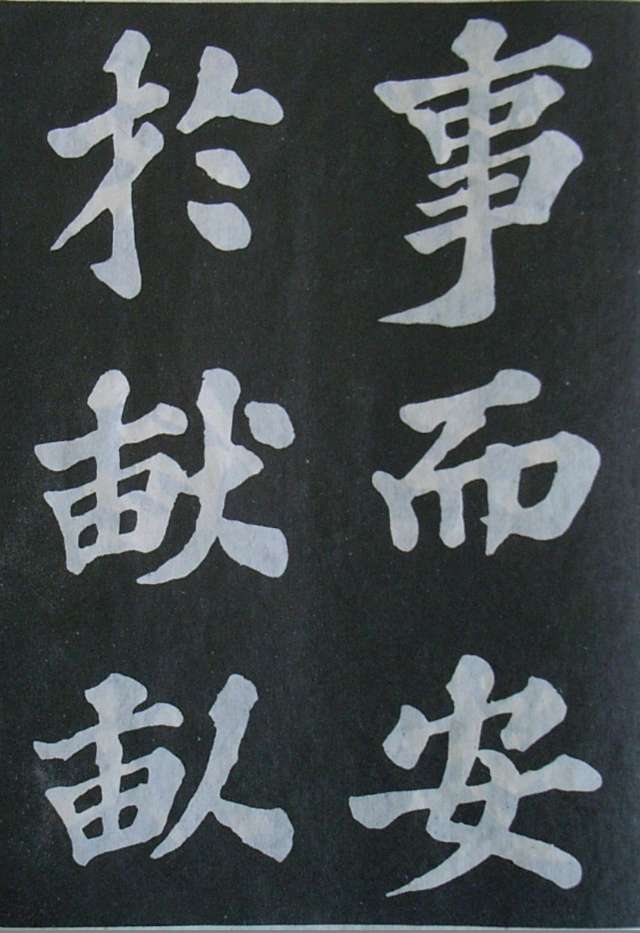 事而安
於畎畝